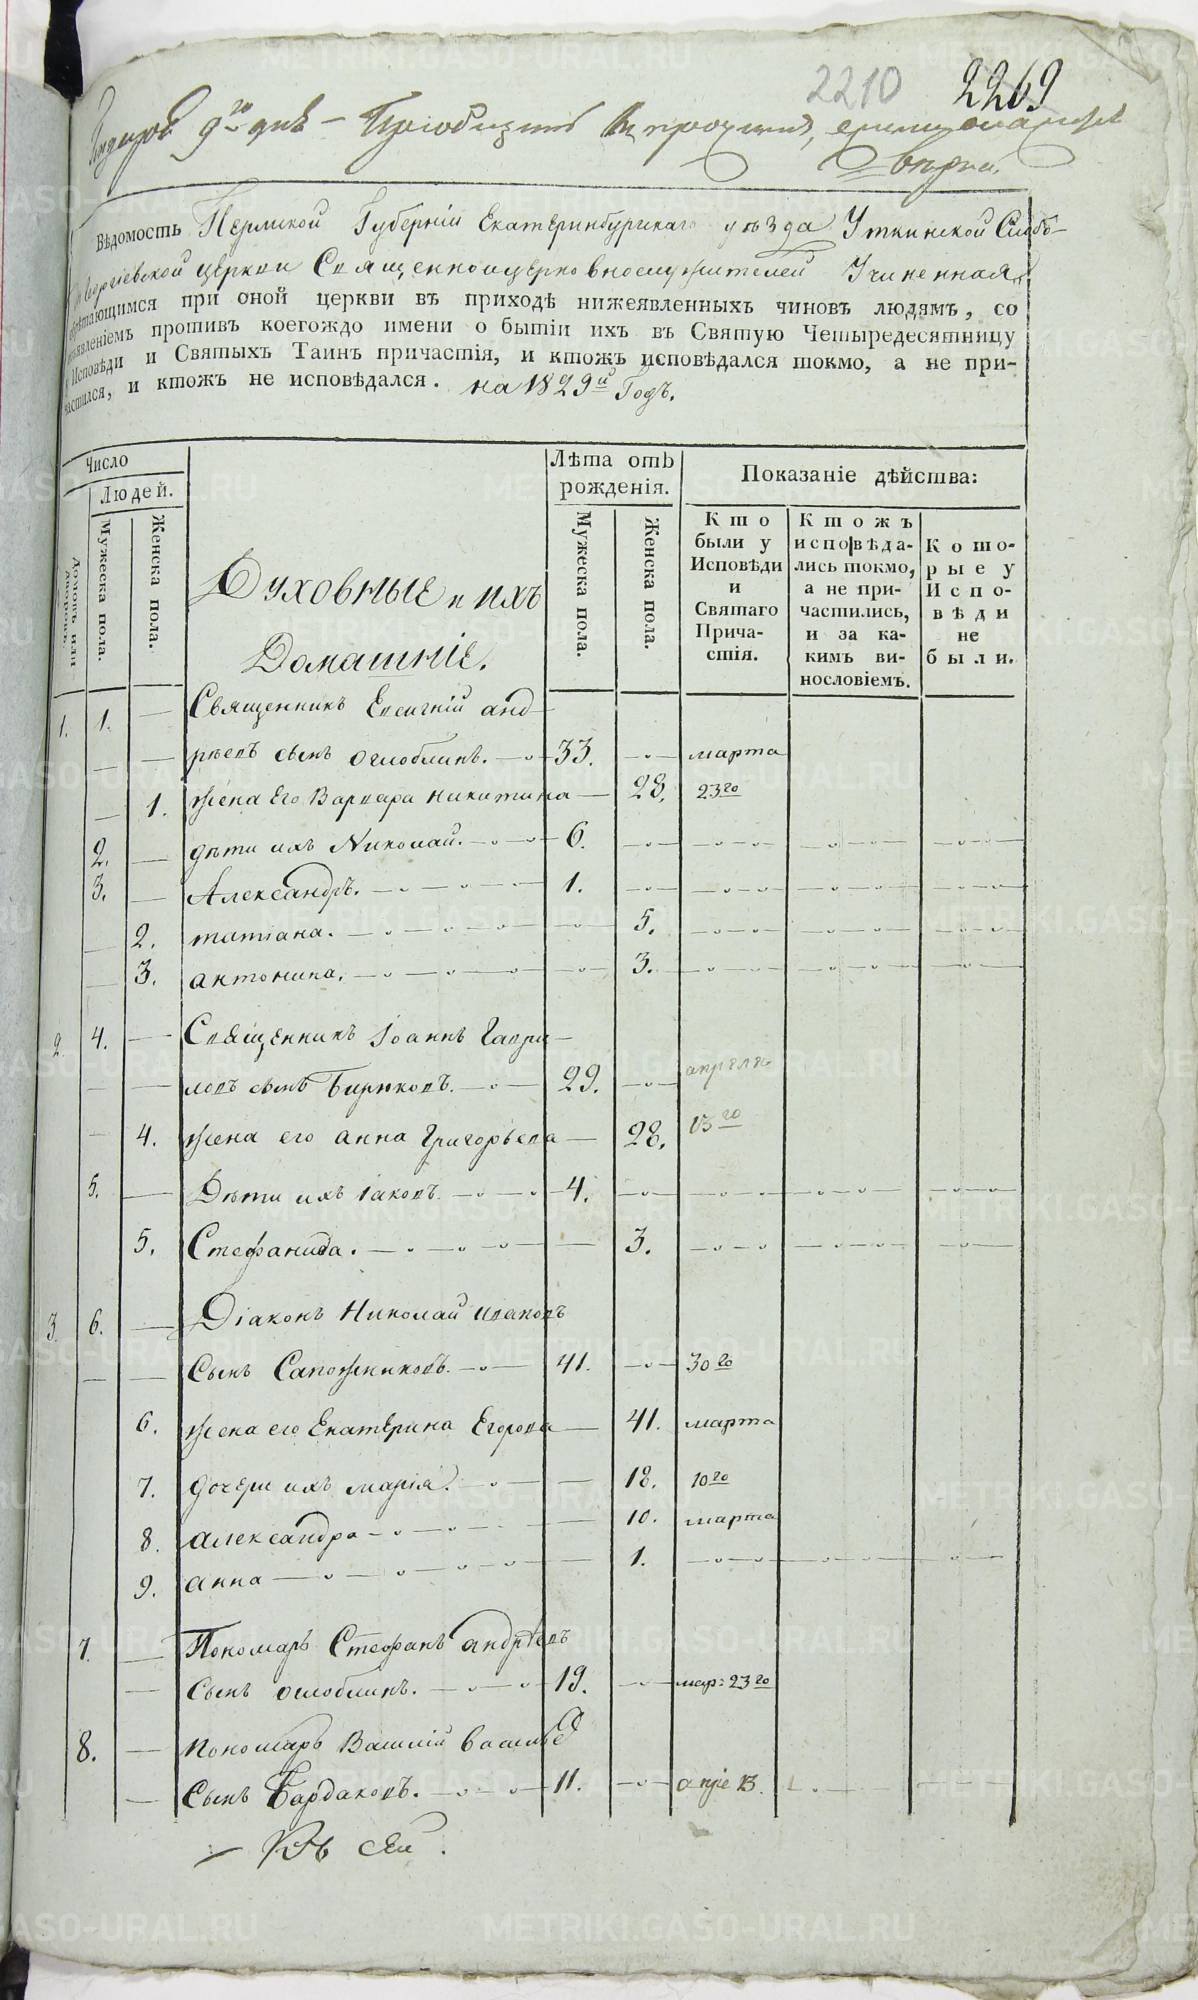 2210 2269
Января 9го дня — Приобщить къ прочимъ,
вѣрно.
Вѣдомость Пермской Губерніи Екатеринбургскаго уѣзда Уткинской Слобо-
Георгіевской церкви Священноцерковнослужителей Учиненная
обрѣтающимся при оной церкви въ приходѣ нижеявленныхъ чиновъ людямъ, со
изъявленіемъ противъ коегождо имени о бытіи ихъ въ Святую Четыредесятницу
у Исповѣди и Святыхъ Таинъ причастія, и ктожъ исповѣдался токмо, а не при-
частился, и ктожъ не исповѣдался. на 1829й Годъ.
Число
Людей.
Домовъ или дворовъ.
Мужеска пола.
Женска пола.
Духовныѣ и ихъ
Домашніе.
Лѣта отъ
рожденія.
Мужеска пола.
Женска пола.
Показаніе дѣйства:
Кто
были у
Исповѣди
и
Святаго
Прича-
стія.
Ктожъ
исповѣда-
лись токмо,
а не при-
частились,
и за ка-
кимъ ви-
нословіемъ.
Кото-
рые у
Испо-
вѣди
не
были.
1. 1. — Священникъ Евсигній анд-
рѣевъ сынъ оглоблинъ. 33. марта
1. жена Его Варвара никитина — 28. 23го
2. — дѣти ихъ Николай. 6.
3. — Александръ. 1.
2. татіана. 5.
3. антонина. 3.
2. 4. — Священникъ Іоаннъ Гаври-
ловъ сынъ Бирюковъ. 29. апрѣля
4. жена его анна Григорьева — 28. 13го
5. — Дѣти ихъ Іаковъ 4.
5. Стефанида. 3.
3. 6. — Діаконъ Николай ивановъ
Сынъ Сапожниковъ. 41. 30го
6. жена его Екатерина Егорова — 41. марта
7. дочери ихъ марія. 18. 10го
8. александра 10. марта
9. анна 1.
7. — Пономарь Стефанъ андрѣевъ
Сынъ оглоблинъ. 19. мар: 23го
8. — пономарь Василій васильев
Сынъ Бардаковъ. 11. апре 13.
— Къ сей.
METRIKI.GASO-URAL.RU